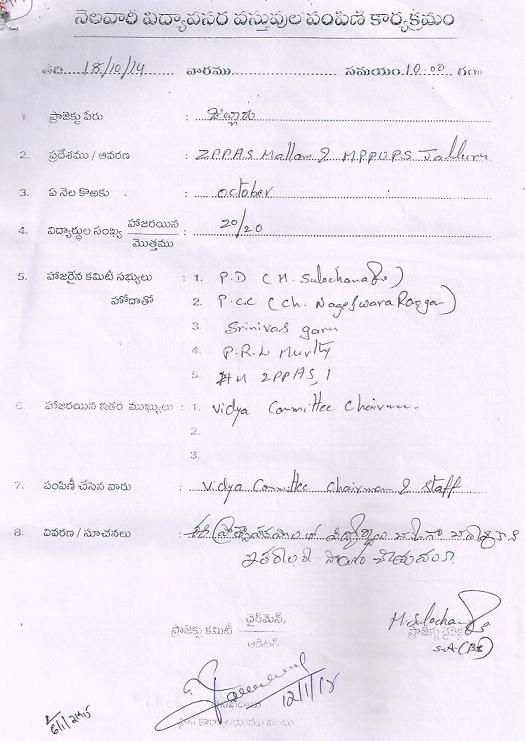 నెలవారి విద్యావసర వస్తువుల పంపిణి కార్యక్రమం
తేది....18/10/14.... వారము.................... సమయం.10:00 గం॥
ప్రాజెక్టు పేరు :
2. ప్రదేశము / ఆవరణ : ZPPHS Mallam & MPPUPS Jalluru
3. ఏ నెల కొఱకు : October
4. విద్యార్థుల సంఖ్య హాజరయిన / మొత్తము : 20/20
5. హాజరైన కమిటీ సభ్యులు : 1. P.D (M. Sulochana)
హోదాతో 2. P.C.C (Ch. Nageswara Rao garu)
3. Srinivas garu
4. P.R.L Murthy
5. HM ZPPHS,
6. హాజరయిన ఇతర ముఖ్యులు : 1. Vidya Committee Chairman.
2.
3.
7. పంపిణీ చేసిన వారు : Vidya Committee Chairman & Staff
8. వివరణ / సూచనలు : ఈ
ప్రాజెక్టు కమిటీ ఛైర్మెన్. M. Sulochana
ఆడిటర్ ప్రాజెక్టు డైరెక్టర్
S.A
12/1/15
6/1/2015